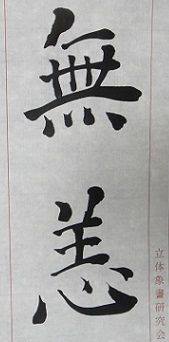 無恙
立体象書研究会